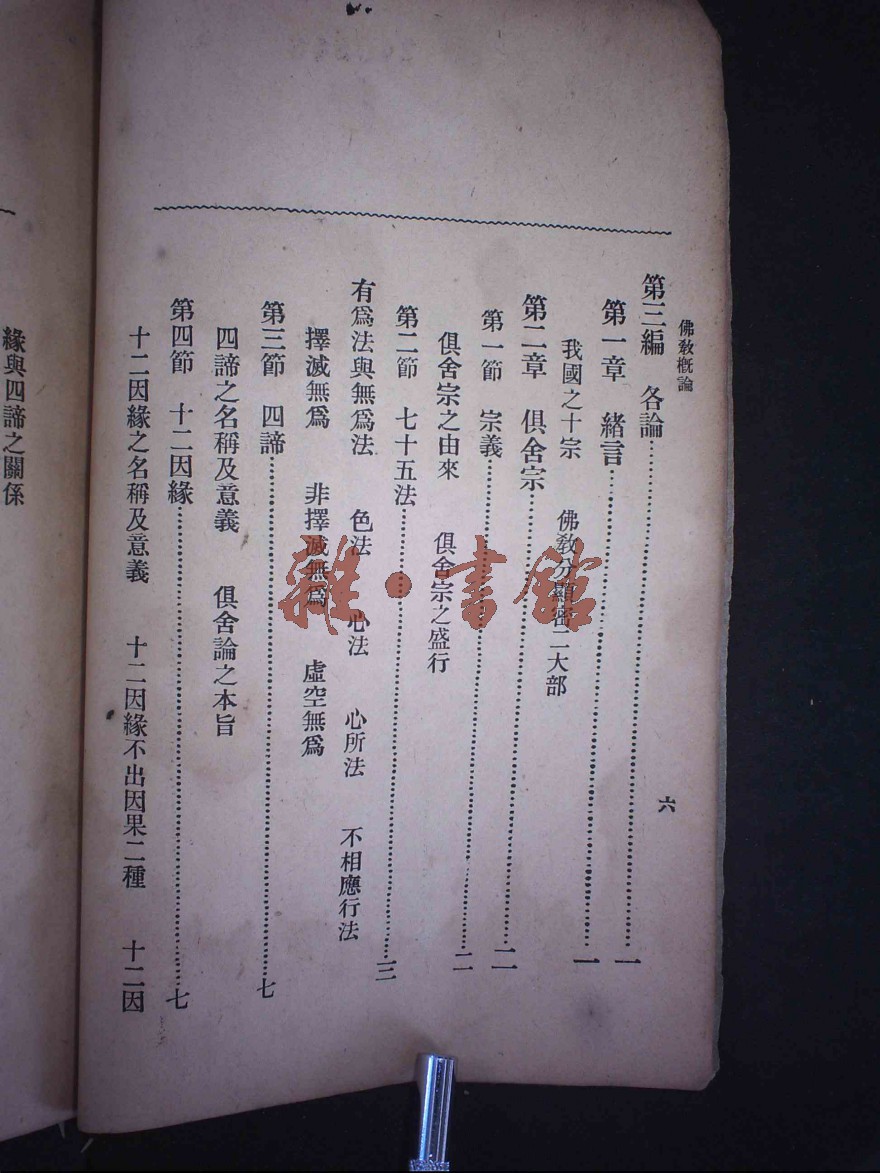 佛教概論
六
第三編　各論……一
第一章　緒言……一
我國之十宗　佛教分顯密二大部
第二章　俱舍宗……二
第一節　宗義……二
俱舍宗之由來　俱舍宗之盛行
第二節　七十五法……三
有爲法與無爲法　色法　心法　心所法　不相應行法
擇滅無爲　非擇滅無爲　虛空無爲
第三節　四諦……七
四諦之名稱及意義　俱舍論之本旨
第四節　十二因緣……七
十二因緣之名稱及意義　十二因緣不出因果二種　十二因
緣與四諦之關係
雜·書館